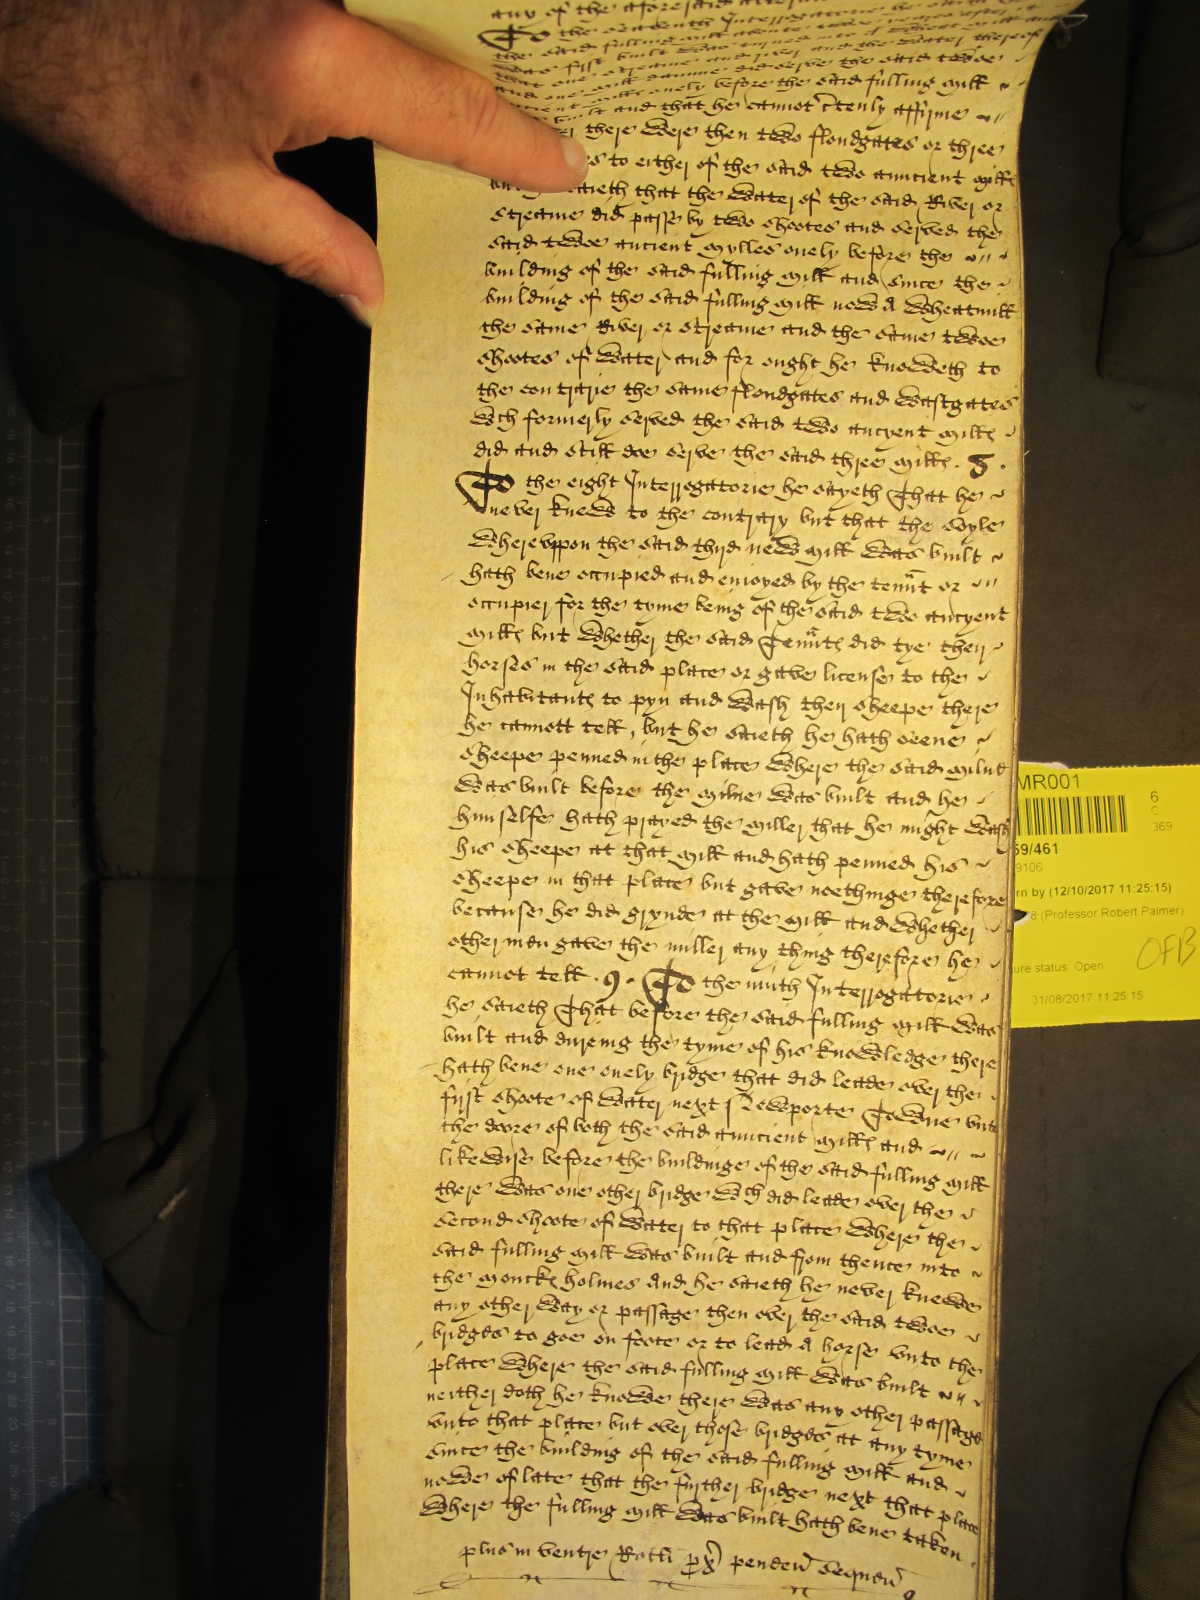 any of the aforesaid
To the seaventh Interrogatorie he saieth that
the said fulling mill
was first built was turned into a wheat mill and
that one streame and river and the water thereof
and one mill damme did serve the said twoe
auncient mills onely before the said fulling mill
built and that he cannot c'tenly affirme
there were then two flondgates or three
to either of the said two auncient mills
but saieth that the water of the said River or
streame did passe by two shootes and served the
said twoe ancient mylles onely before the
building of the said fulling mill and since the
building of the said fulling mill now a wheatmill
the same River or streame and the same twoe
shootes of water and for ought he knoweth to
the contrarie the same flondgates and wastgates
wch formerly served the said two ancyent mills
did and still doe serve the said three mills . 8 .
To the eight Interrogatorie he sayeth That he
never knewe to the contrary but that the soyle
whereuppon the said third new mill was built
hath bene occupied and enioyed by the tennt or
occupier for the tyme being of the said two ancyent
mills but whether the said Tennts did tye their
horses in the said place or gave license to the
Inhabitants to pyn and wash their sheepe there
he cannott tell, but he saieth he hath seene
sheepe penned in the place where the said milne
was built before the milne was built and he
himselfe hath prayed the miller that he might wash
his sheepe at that mill and hath penned his
sheepe in that place but gave noethinge therefore
because he did grynde at the mill and whether
other men gave the miller any thing therefore he
cannot tell . 9 . To the ninth Interrogatorie
he saieth That before the said fulling mill was
built and during the tyme of his knowledge there
hath bene one onely bridge that did leade over the
first shoote of water next Newporte Towne unto
the doore of both the said auncient mills and
likewise before the buildinge of the said fulling mill
there was one other bridge wch did leade over the
second shoote of water to that place where the
said fulling mill was built and from thence into
the moncks holmes And he saieth he never knewe
any other way or passage then over the said twoe
bridges to goe on foote or to lead a horse unto the
place where the said fulling mill was built
neither doth he knowe there was any other passage
unto that place but over those bridges at any tyme
since the building of the said fulling mill and
nowe of late that the further bridge next that place
where the fulling mill was built hath bene taken
plus in ventre Rotli px' penden' sequen'
MR001
6
C
369
59/461
9106
rn by (12/10/2017 11:25:15)
8 (Professor Robert Palmer)
OFB
ure status Open
31/08/2017 11:25:15